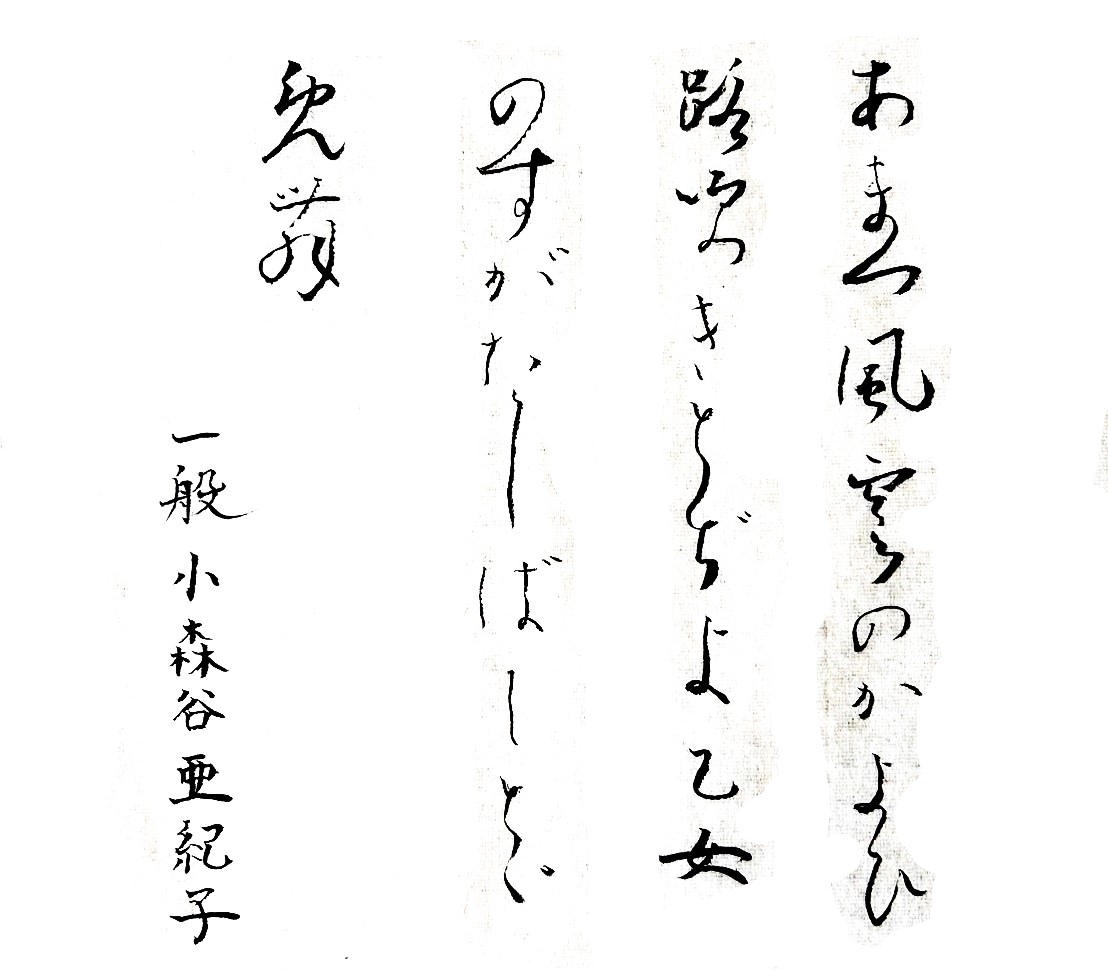 あまつ風雲のかよひ
路吹きとぢよ乙女
のすがたしばしとど
免舞
一般 小森谷亜紀子